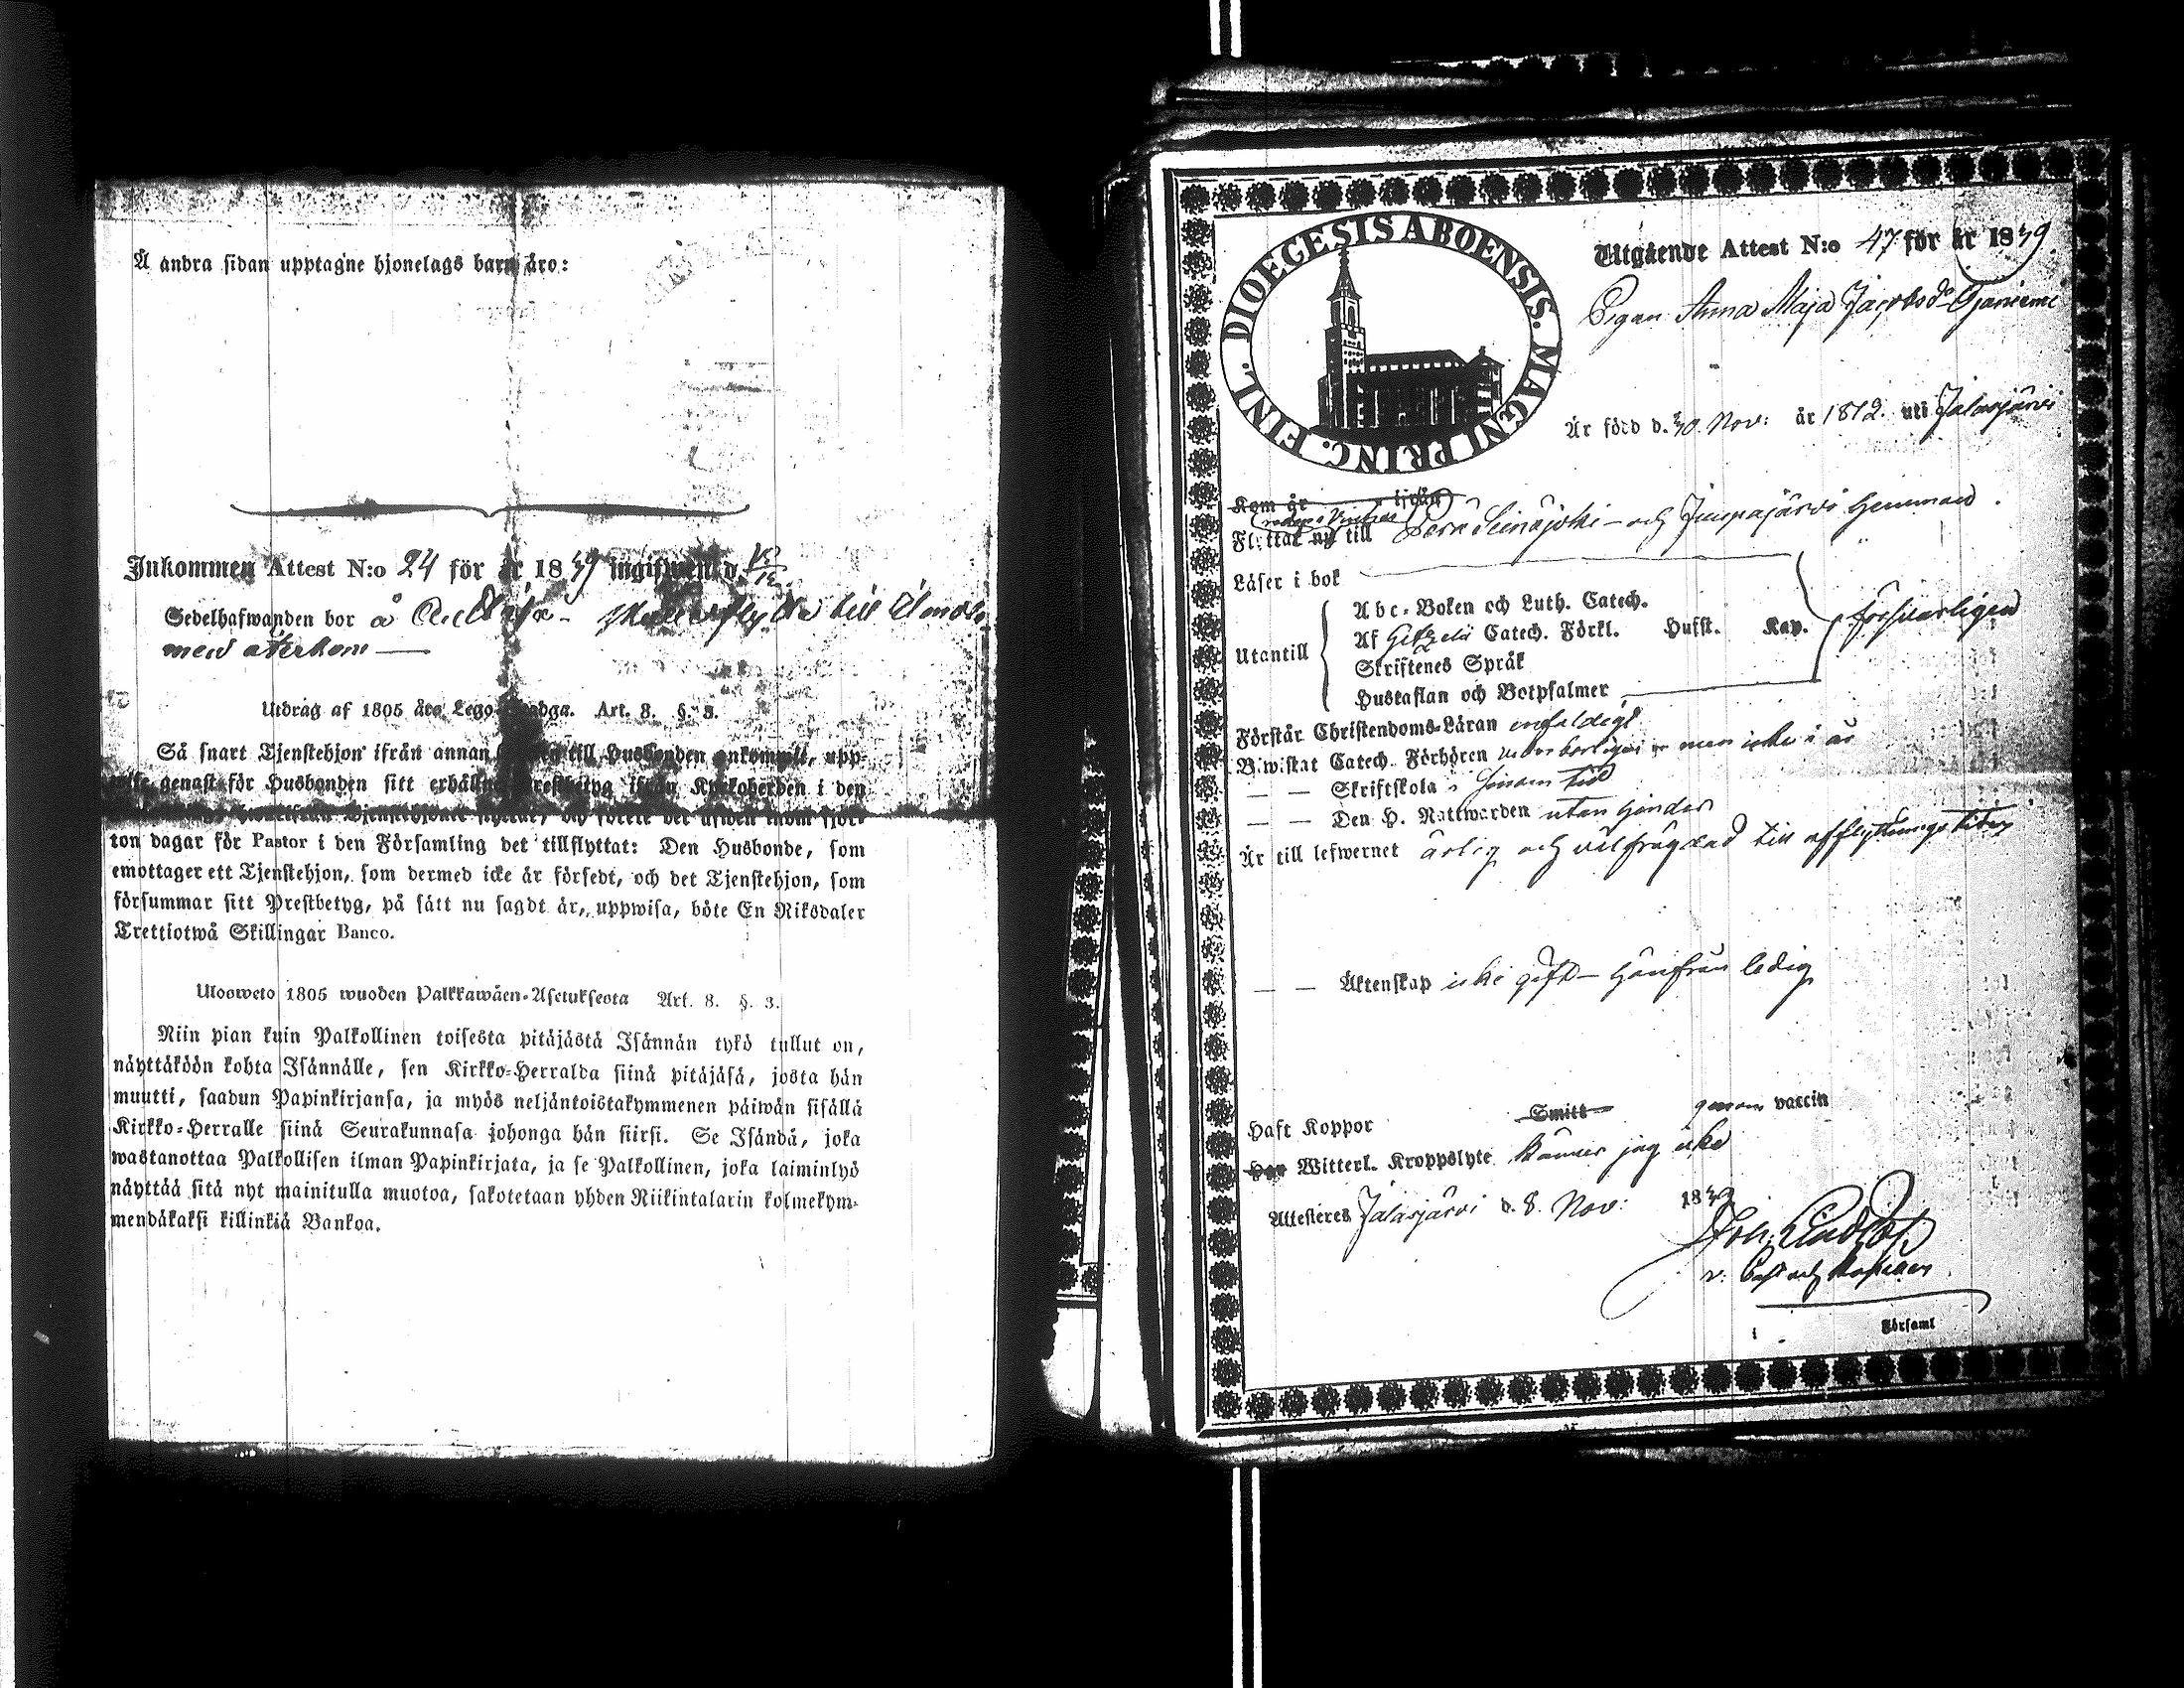 Å andra sidan upptagne hjonelags barn äro:
Inkommen Attest N:o 24 för år 1839 ingifwen d.
Sedelhafwanden bor å
med återkom
Utdrag af 1805 års Lego-Stadga. Art. 8. §. 3.
Så snart Tjenstehjon ifrån annan till Husbonden ankommit, upp-
genast för Husbonden sitt erhållne Prestbetyg ifrån Kyrkoherden i den
ton dagar för Pastor i den Församling det tillflyttat: Den Husbonde, som
emottager ett Tjenstehjon, som dermed icke är försedt, och det Tjenstehjon, som
försummar sitt Prestbetyg, på sätt nu sagdt är, uppwisa, böte En Riksdaler
Trettiotwå Skillingar Banco.
Ulosweto 1805 wuoden Palkkawäen-Asetuksesta Art. 8. §. 3.
Niin pian kuin Palkollinen toisesta pitäjästä Isännän tykö tullut on,
näyttäköön kohta Isännälle, sen Kirkko-Herralda siinä pitäjäsä, josta hän
muutti, saadun Papinkirjansa, ja myös neljäntoistakymmenen päiwän sisällä
Kirkko-Herralle siinä Seurakunnasa johonga hän siirsi. Se Isändä, joka
wastanottaa Palkollisen ilman Papinkirjata, ja se Palkollinen, joka laiminlyö
näyttää sitä nyt mainitulla muotoa, sakotetaan yhden Riikintalarin kolmekym-
mendäkaksi killinkiä Bankoa.
DIOECESIS ABOENSIS. MAGNI PRINC. FINL.
Utgående Attest N:o 47 för år 1839
Pigan Anna Maja Jacobsd:r
Är född d. 30. Nov: år 1812. uti Jalasjärvi
Kom år ifrån
Flyttat ny till Perä Seinäjoki och hemman.
Läser i bok
Abc-Boken och Luth. Catech.
Af Gezelii Catech. Förkl. Husst. Kap. försvarligen
Utantill
Skriftenes Språk
Hustaflan och Botpsalmer
Förstår Christendoms-Läran enfaldigt
Biwistat Catech. Förhören men icke i år
— — Skriftskola i sinom tid
— — Den H. Nattwarden utan hinder
Är till lefwernet ärlig och välfrägdad till afflyttningstiden
— — Äktenskap icke gift – härifrån ledig
Haft Koppor Smitt genom vaccin
Har Witterl. Kroppslyte känner jag icke
Attesteras Jalasjärvi d. 8. Nov: 1839
Joh:
v: Past och
Församl